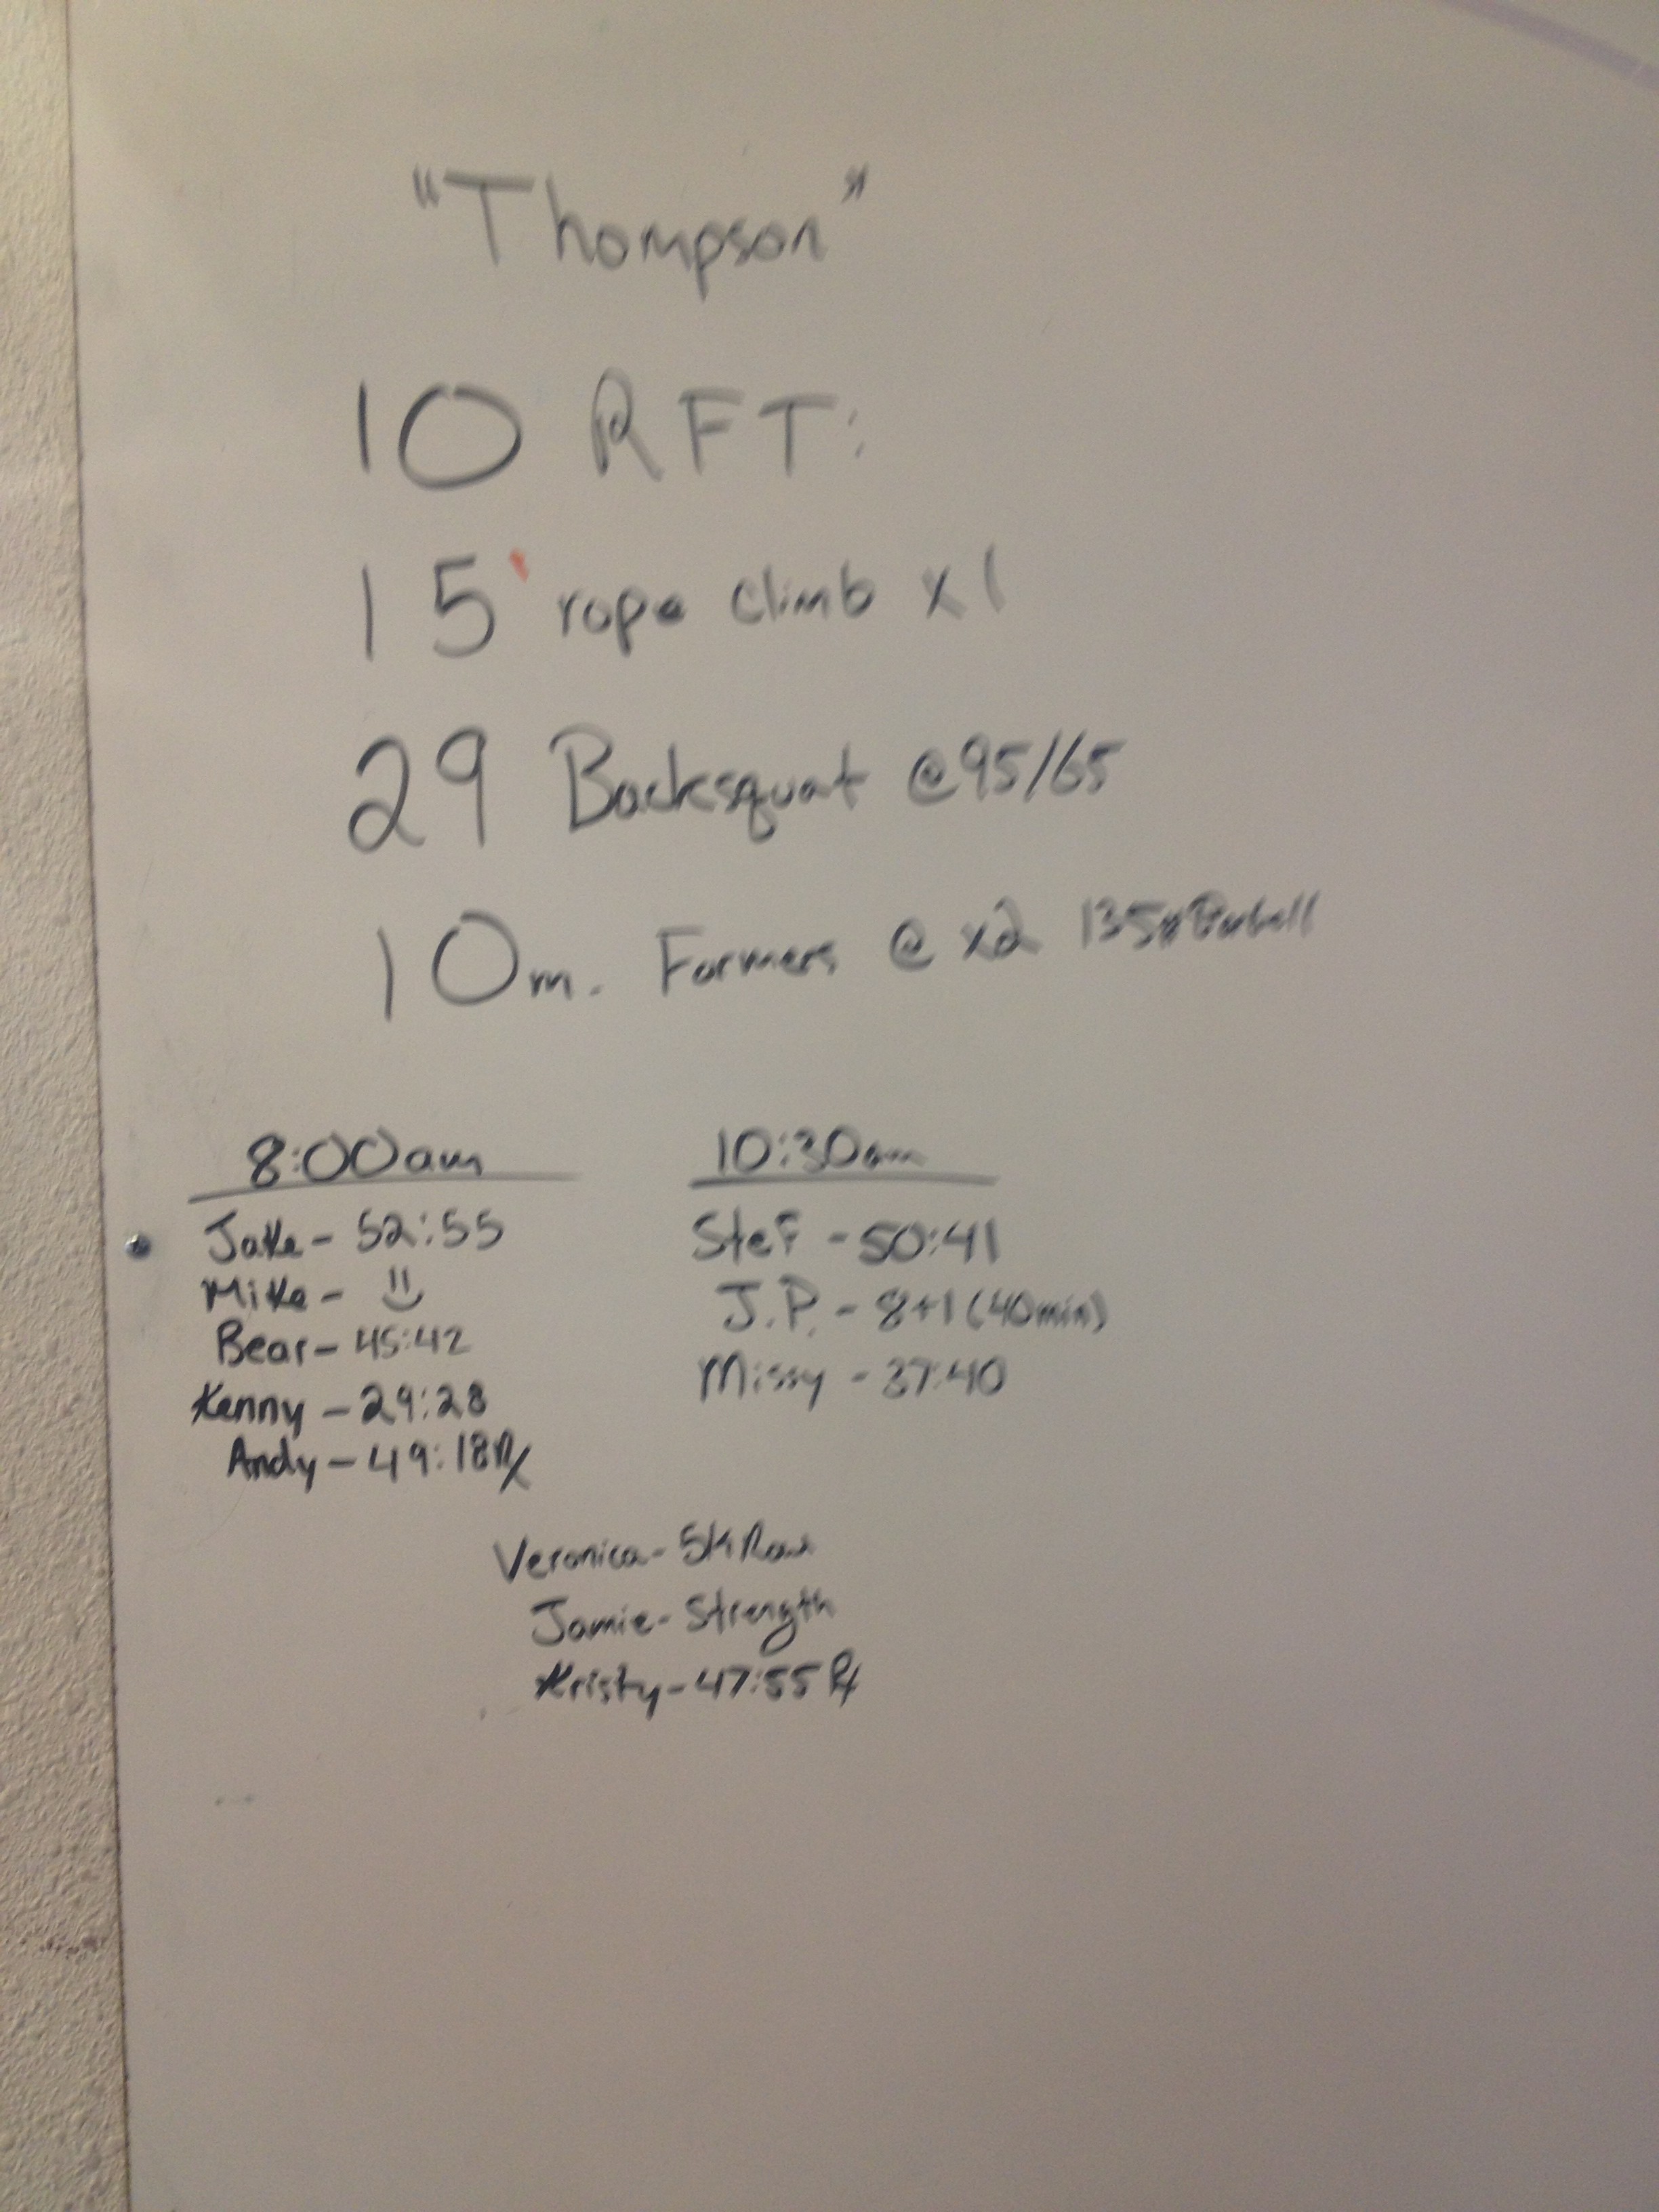 "Thompson"
10 RFT:
15' rope climb x1
29 Backsquat @ 95/65
10m. Farmers @ x2 135# Barbell
8:00am
Jake - 52:55
Mike -
Bear - 45:42
Kenny - 29:28
Andy - 49:18 Rx
10:30am
Stef - 50:41
J.P. - 8+1 (40min)
Missy - 37:40
Veronica - 5K Row
Jamie - Strength
Kristy - 47:55 Rx